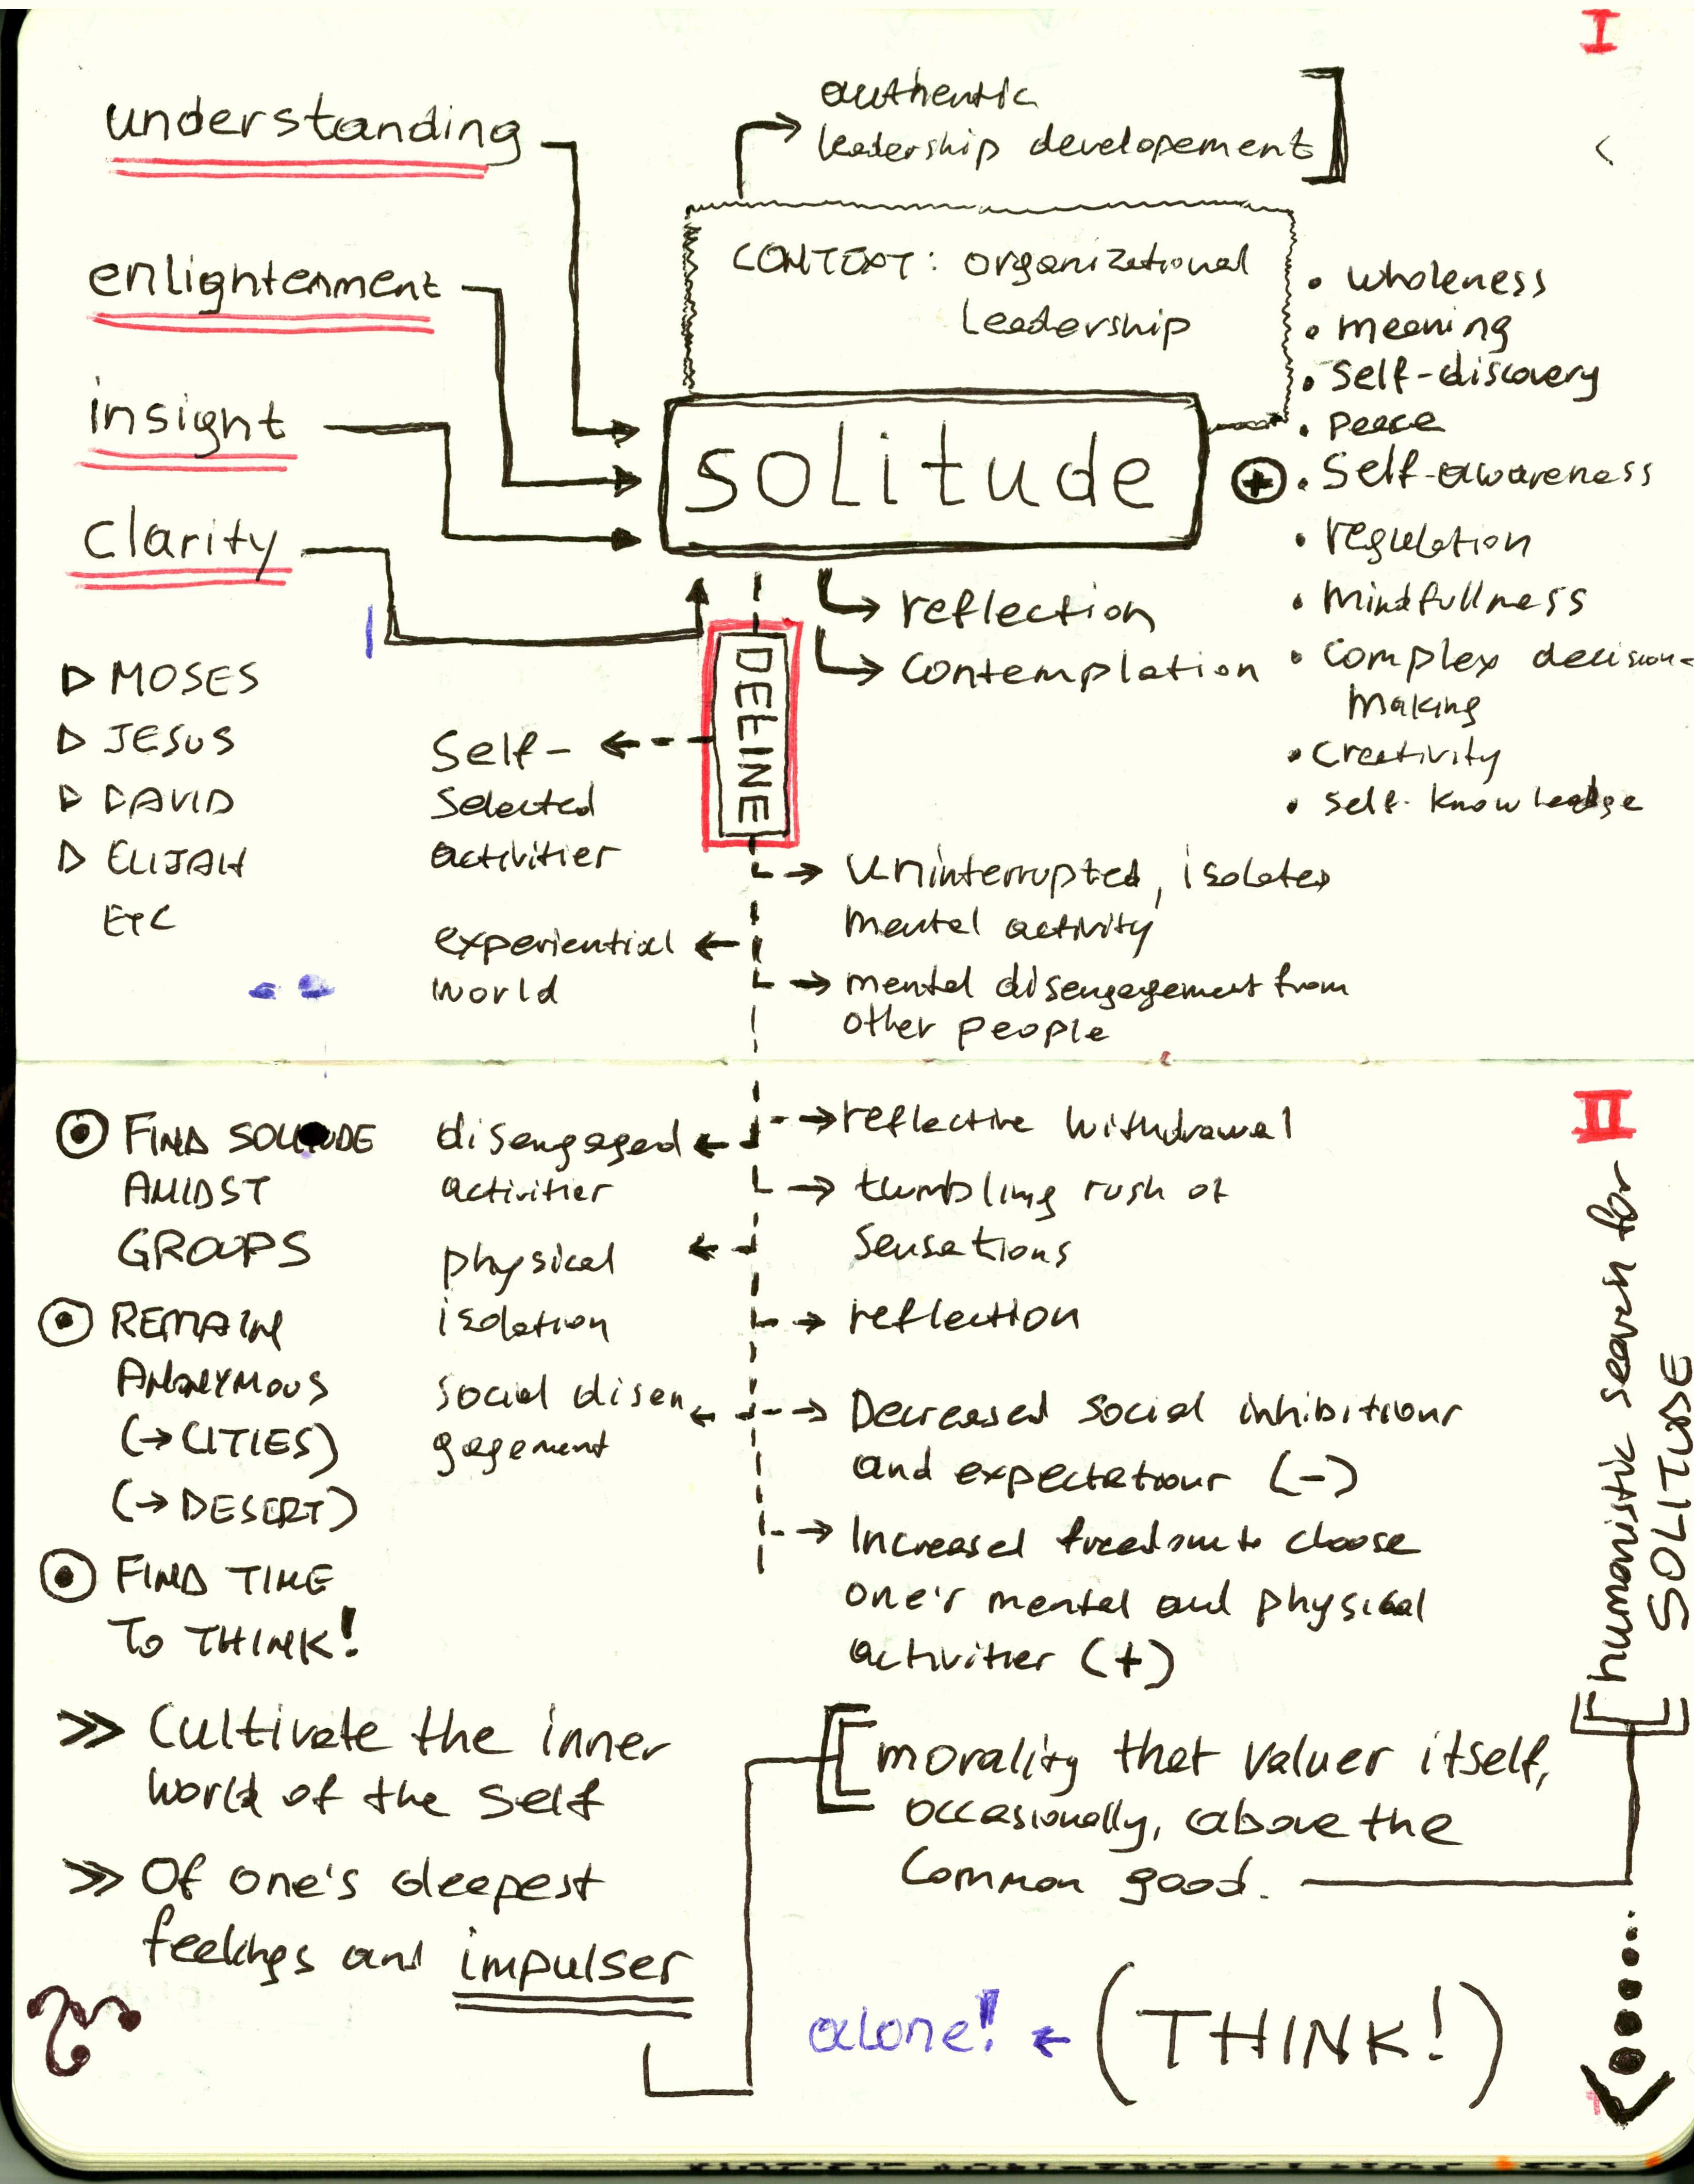 I
understanding
enlightenment
insight
clarity
authentic
leadership developement
CONTEXT: organizational
leadership
solitude
• wholeness
• meaning
• self-discovery
• peace
+ • self-awareness
• regulation
• mindfullness
• complex decision-
making
• creativity
• self-knowledge
reflection
contemplation
DEFINE
MOSES
JESUS
DAVID
ELIJAH
ETC
Self-
selected
activities
experiential
world
uninterrupted, isolated
mental activity
mental disengagement from
other people
II
FIND SOLITUDE
AMIDST
GROUPS
REMAIN
ANONYMOUS
(→CITIES)
(→DESERT)
FIND TIME
TO THINK!
disengaged
activities
physical
isolation
social disen
gagement
reflective withdrawal
tumbling rush of
sensations
reflection
Decreased social inhibitions
and expectations (-)
Increased freedom to choose
one's mental and physical
activities (+)
humanistic search for
SOLITUDE
>> Cultivate the inner
world of the self
>> Of one's deepest
feelings and impulses
morality that values itself,
occasionally, above the
common good.
alone! ← (THINK!)